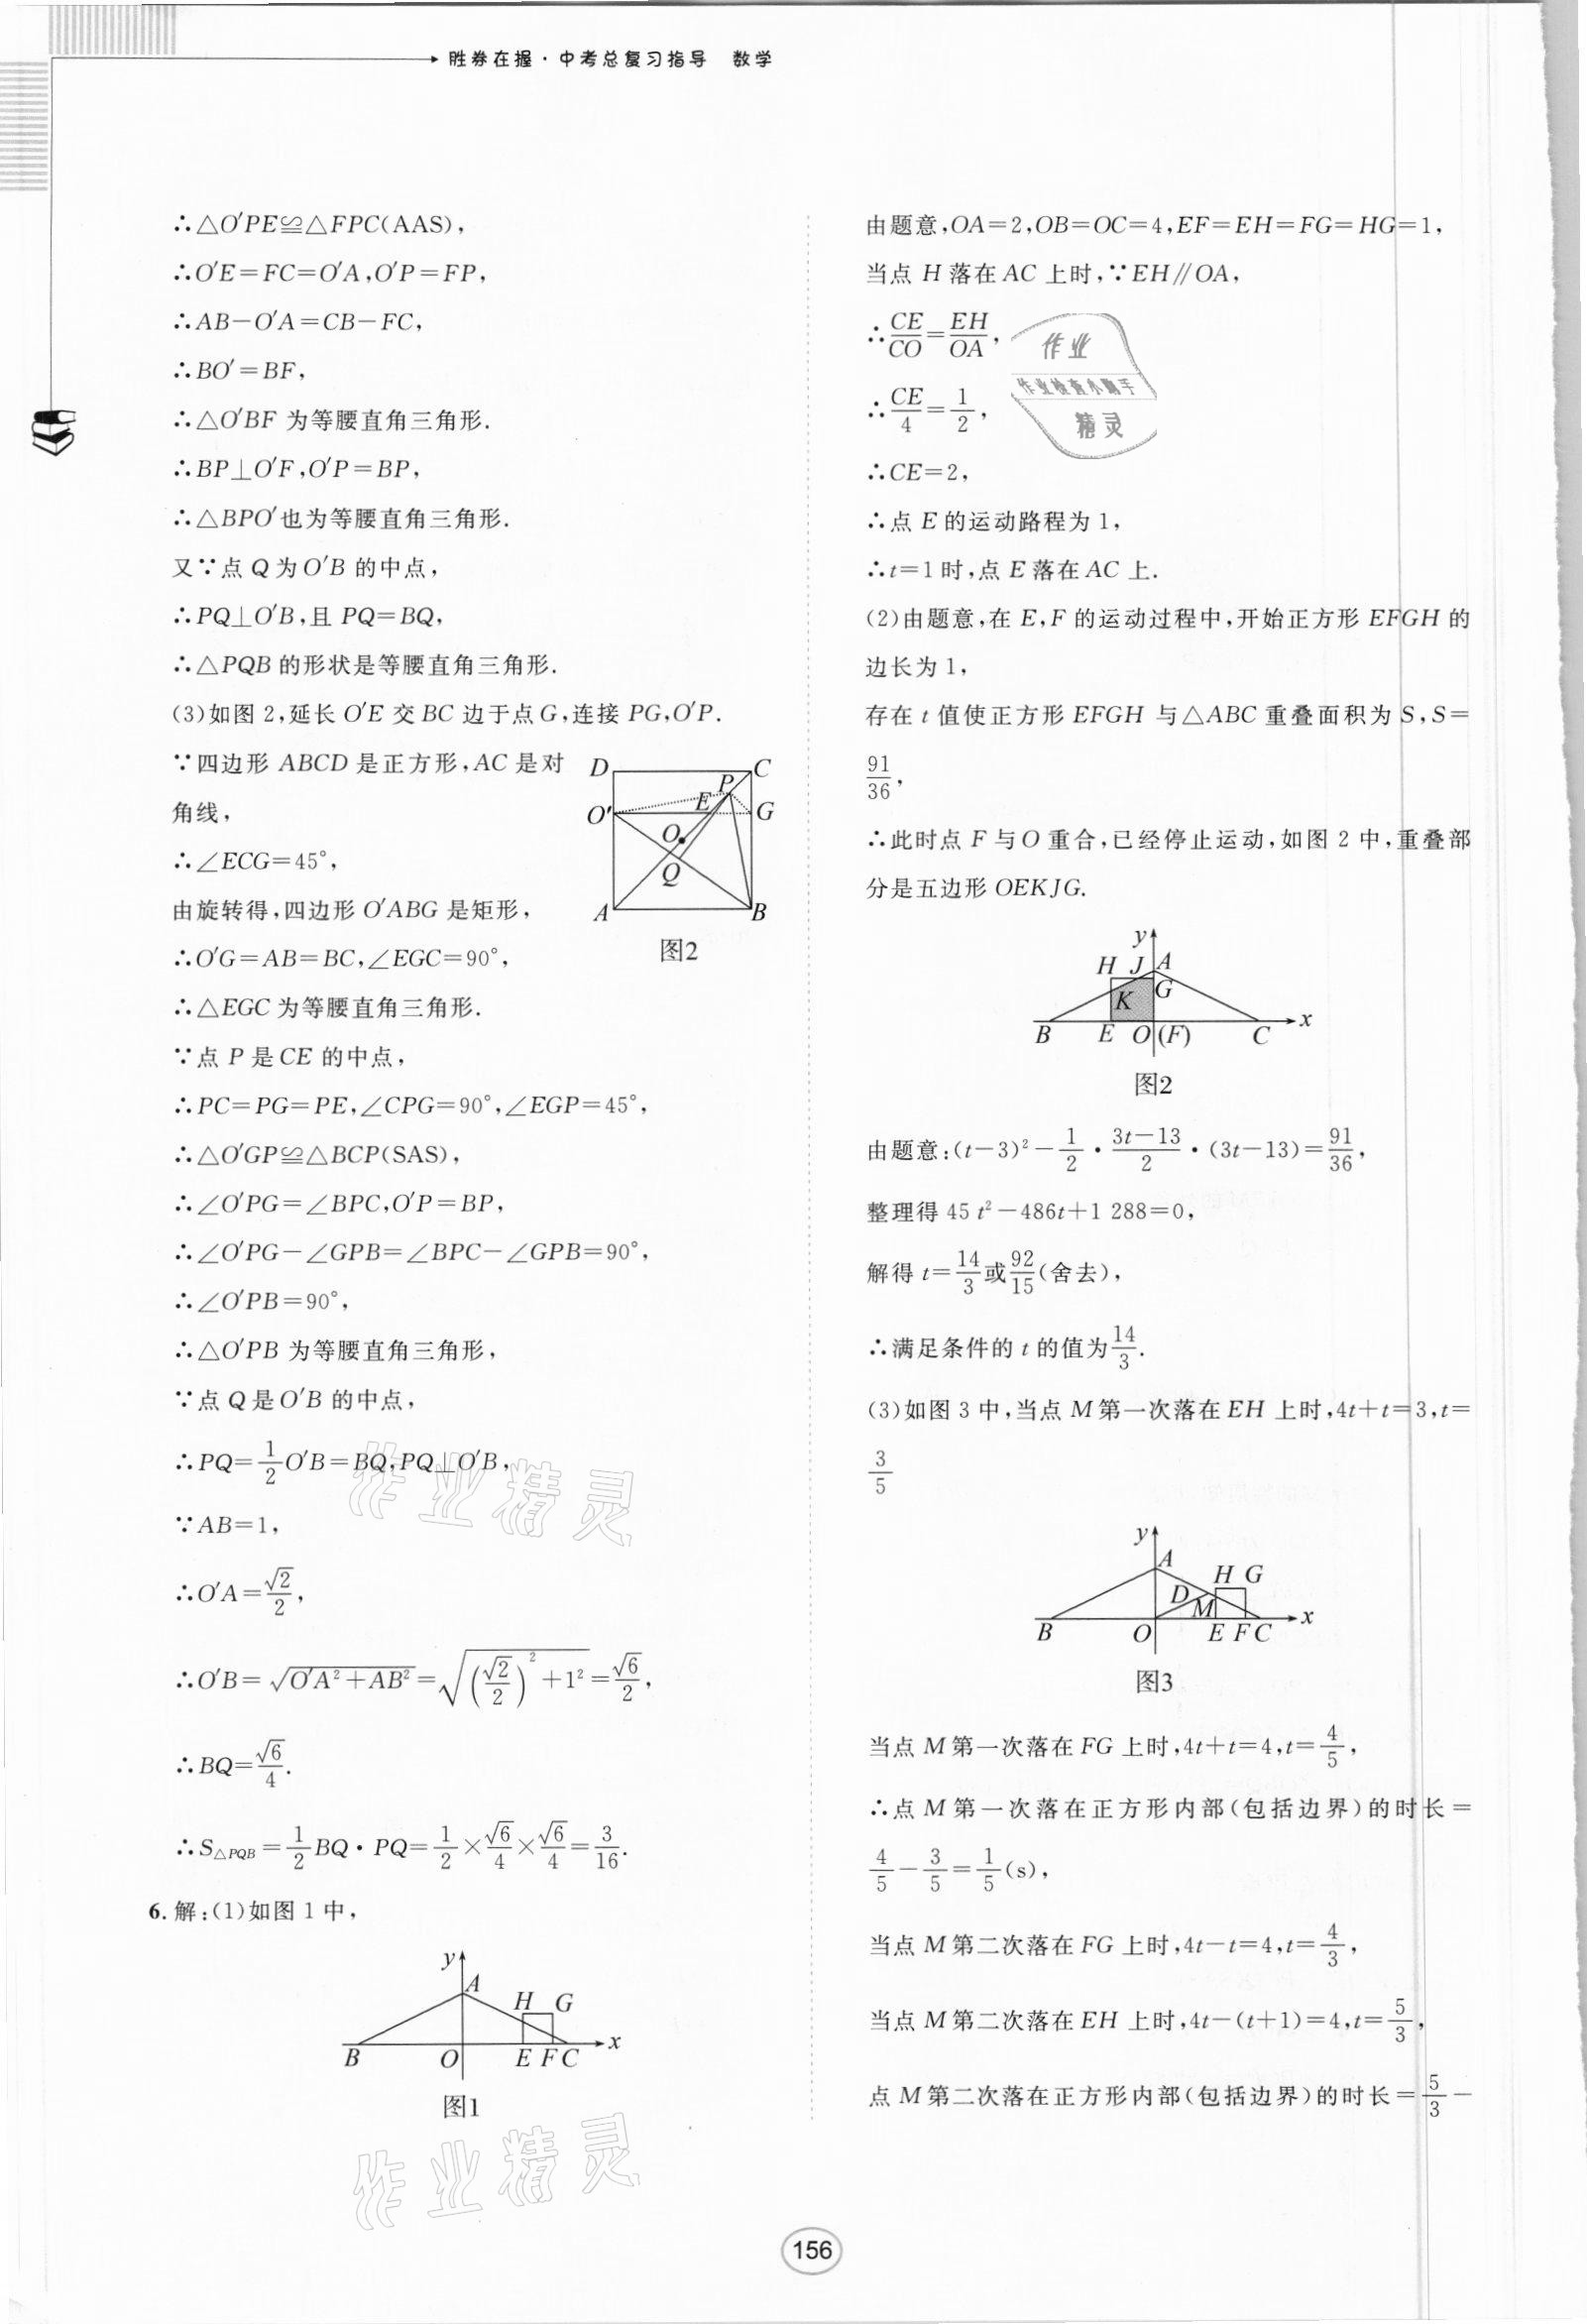 胜券在握·中考总复习指导　数学
∴△O′PE≌△FPC(AAS),
∴O′E=FC=O′A,O′P=FP,
∴AB-O′A=CB-FC,
∴BO′=BF,
∴△O′BF 为等腰直角三角形.
∴BP⊥O′F,O′P=BP,
∴△BPO′也为等腰直角三角形.
又∵点 Q 为 O′B 的中点,
∴PQ⊥O′B,且 PQ=BQ,
∴△PQB 的形状是等腰直角三角形.
(3)如图 2,延长 O′E 交 BC 边于点 G,连接 PG,O′P.
∵四边形 ABCD 是正方形,AC 是对
角线,
∴∠ECG=45°,
由旋转得,四边形 O′ABG 是矩形,
∴O′G=AB=BC,∠EGC=90°,
D C P E O′ G O Q A B
图2
∴△EGC 为等腰直角三角形.
∵点 P 是 CE 的中点,
∴PC=PG=PE,∠CPG=90°,∠EGP=45°,
∴△O′GP≌△BCP(SAS),
∴∠O′PG=∠BPC,O′P=BP,
∴∠O′PG-∠GPB=∠BPC-∠GPB=90°,
∴∠O′PB=90°,
∴△O′PB 为等腰直角三角形,
∵点 Q 是 O′B 的中点,
∴PQ=1/2 O′B=BQ,PQ⊥O′B,
∵AB=1,
∴O′A=√2/2,
∴O′B=√(O′A²+AB²)=√((√2/2)²+1²)=√6/2,
∴BQ=√6/4.
∴S△PQB=1/2 BQ·PQ=1/2×√6/4×√6/4=3/16.
6. 解:(1)如图 1 中,
y A H G B O E F C x
图1
由题意,OA=2,OB=OC=4,EF=EH=FG=HG=1,
当点 H 落在 AC 上时,∵EH∥OA,
∴CE/CO=EH/OA,
∴CE/4=1/2,
∴CE=2,
∴点 E 的运动路程为 1,
∴t=1 时,点 E 落在 AC 上.
(2)由题意,在 E,F 的运动过程中,开始正方形 EFGH 的
边长为 1,
存在 t 值使正方形 EFGH 与△ABC 重叠面积为 S,S=
91/36,
∴此时点 F 与 O 重合,已经停止运动,如图 2 中,重叠部
分是五边形 OEKJG.
y H J A K G B E O (F) C x
图2
由题意:(t-3)²-1/2·(3t-13)/2·(3t-13)=91/36,
整理得 45 t²-486t+1 288=0,
解得 t=14/3或92/15(舍去),
∴满足条件的 t 的值为14/3.
(3)如图 3 中,当点 M 第一次落在 EH 上时,4t+t=3,t=
3/5
y A H G D M B O E F C x
图3
当点 M 第一次落在 FG 上时,4t+t=4,t=4/5,
∴点 M 第一次落在正方形内部(包括边界)的时长=
4/5-3/5=1/5(s),
当点 M 第二次落在 FG 上时,4t-t=4,t=4/3,
当点 M 第二次落在 EH 上时,4t-(t+1)=4,t=5/3,
点 M 第二次落在正方形内部(包括边界)的时长=5/3-
156
作业
作业检查小助手
精灵
作业精灵
作业精灵